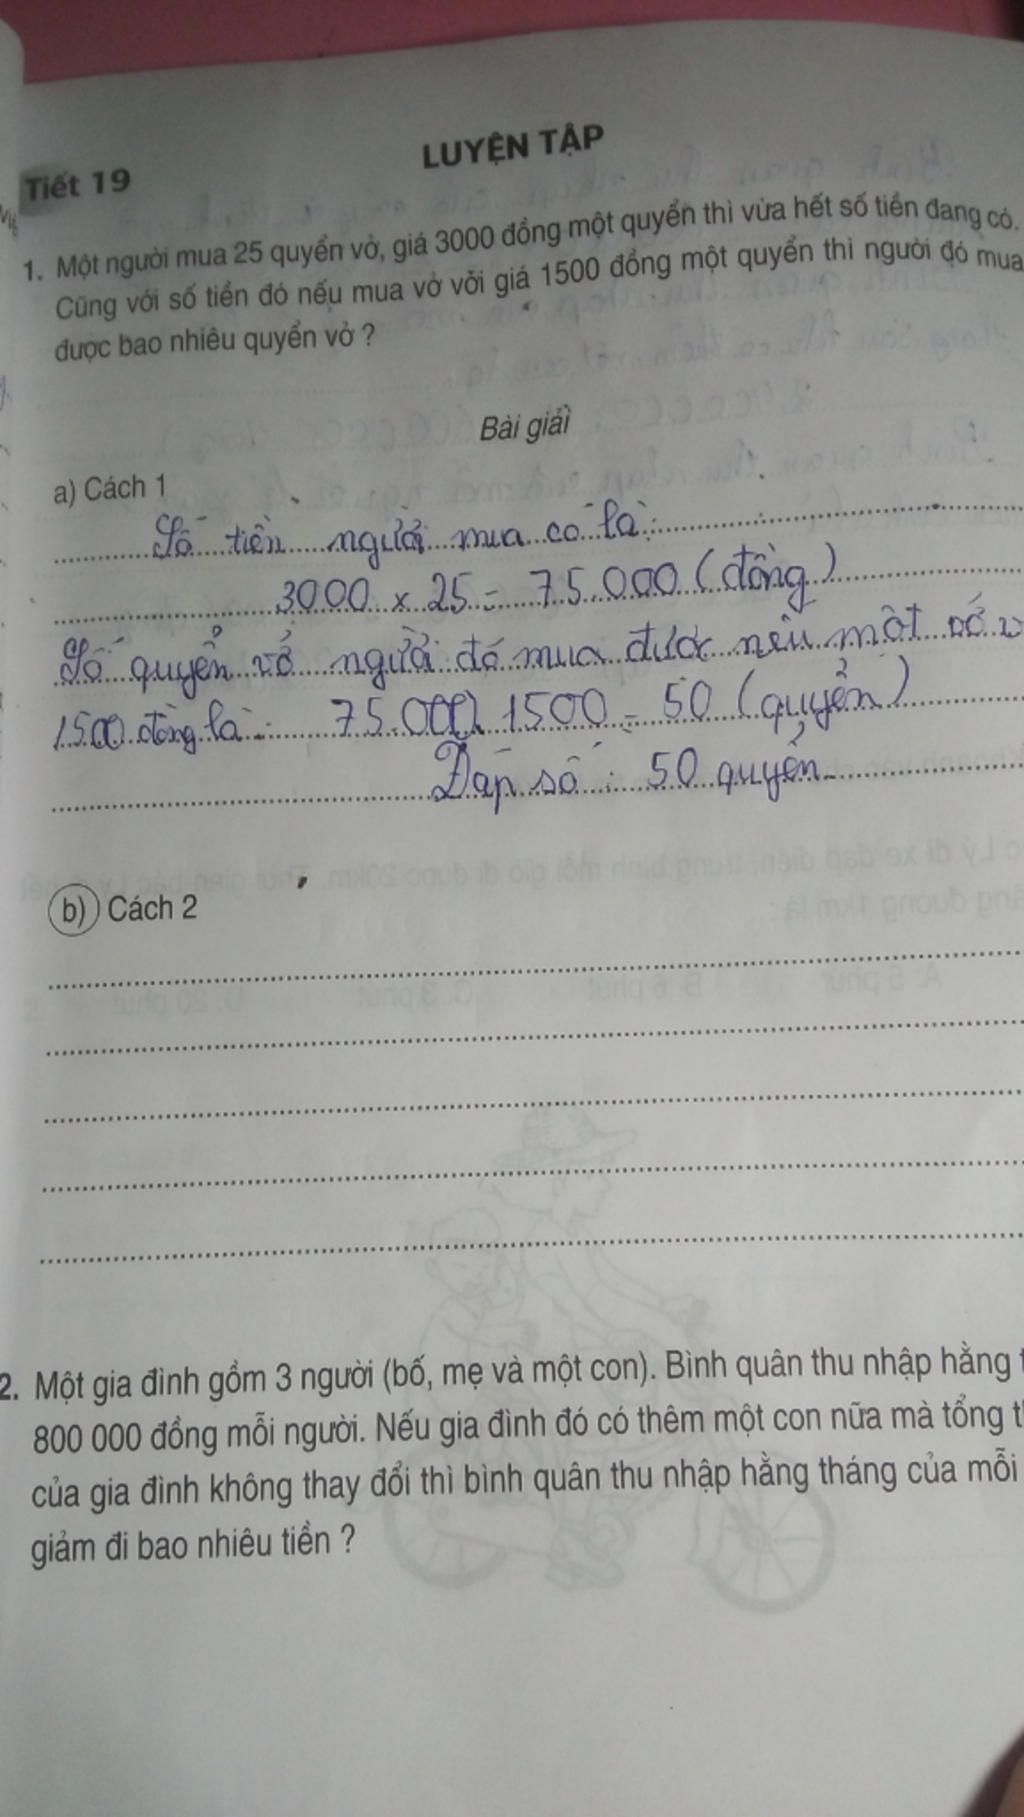 LUYỆN TẬP
Tiết 19
1. Một người mua 25 quyển vở, giá 3000 đồng một quyển thì vừa hết số tiền đang có.
Cũng với số tiền đó nếu mua vở với giá 1500 đồng một quyển thì người đó mua
được bao nhiêu quyển vở ?
Bài giải
a) Cách 1
Số tiền người mua có là:
3000 x 25 = 75.000 (đồng)
Số quyển vở người đó mua được nếu một vở
1500 đồng là: 75.000 : 1500 = 50 (quyển)
Đáp số : 50 quyển
b) Cách 2
2. Một gia đình gồm 3 người (bố, mẹ và một con). Bình quân thu nhập hằng
800 000 đồng mỗi người. Nếu gia đình đó có thêm một con nữa mà tổng
của gia đình không thay đổi thì bình quân thu nhập hằng tháng của mỗi
giảm đi bao nhiêu tiền ?